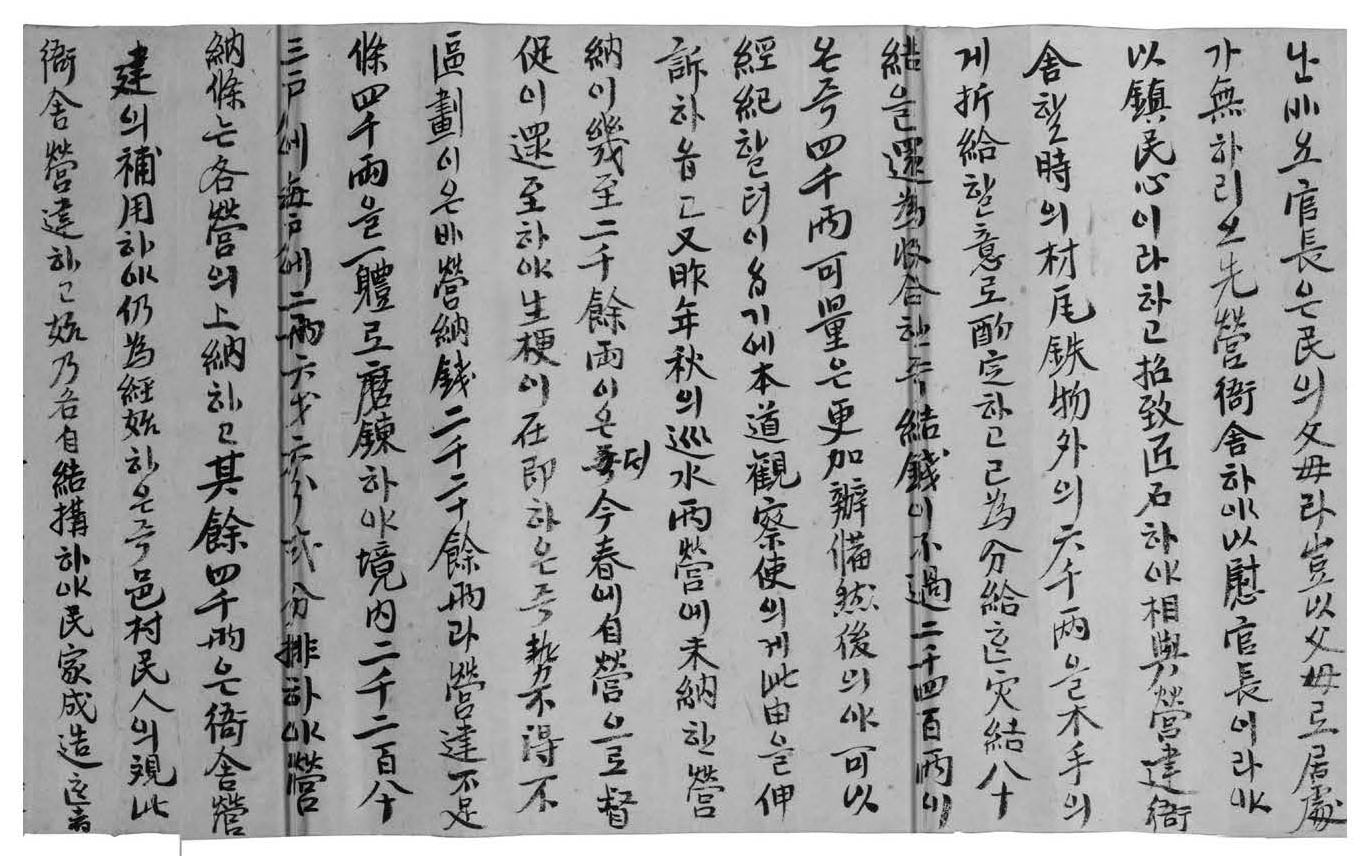 난비요官長은民의父母라豈以父母로居處
가無하리요先營衙舍하야以慰官長이라야
以鎭民心이라하고招致匠石하야相與營建衙
舍할時의材瓦鉄物外의六千両을木手의
게折給할意로酌定하고已為分給這灾結八十
結을還為收合한즉結錢이不過二千四百両이
온즉四千両可量은更加辦備然後의야可以
經紀할터이삽기에本道觀察使의게此由을伸
訴하압고又昨年秋의巡水両營에未納한營
納이幾至二千餘両이온더今春에自營으로督
促이還至하야生梗이在即하온즉勢不得不
區劃이온바營納錢二千二十餘両과營建不足
條四千両을一體로磨鍊하야境内二千二百八十
三戸에每戸에二両六戋六分式分排하야營
納條는各營의上納하고其餘四千両은衙舍營
建의補用하야仍為經始하온즉邑村民人의覩此
衙舍營建하고始乃各自結搆하야民家成造這音